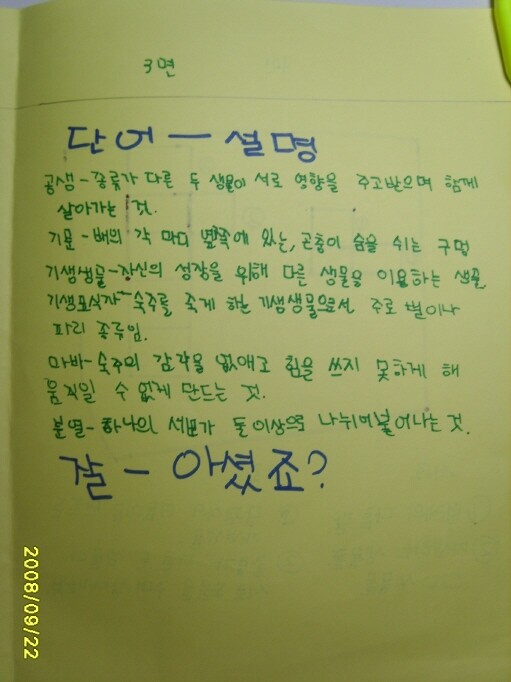 3면
단어 - 설명
공생 - 종류가 다른 두 생물이 서로 영향을 주고받으며 함께
살아가는 것.
기문 - 배의 각 마디 옆쪽에 있는, 곤충이 숨을 쉬는 구멍
기생생물 - 자신의 성장을 위해 다른 생물을 이용하는 생물
기생포식자 - 숙주를 죽게 하는 기생생물으로서 주로 벌이나
파리 종류임.
마비 - 숙주의 감각을 없애고 힘을 쓰지 못하게 해
움직일 수 없게 만드는 것.
분열 - 하나의 세포가 둘이상으로 나뉘어 불어나는 것.
잘 - 아셨죠?
2008/09/22